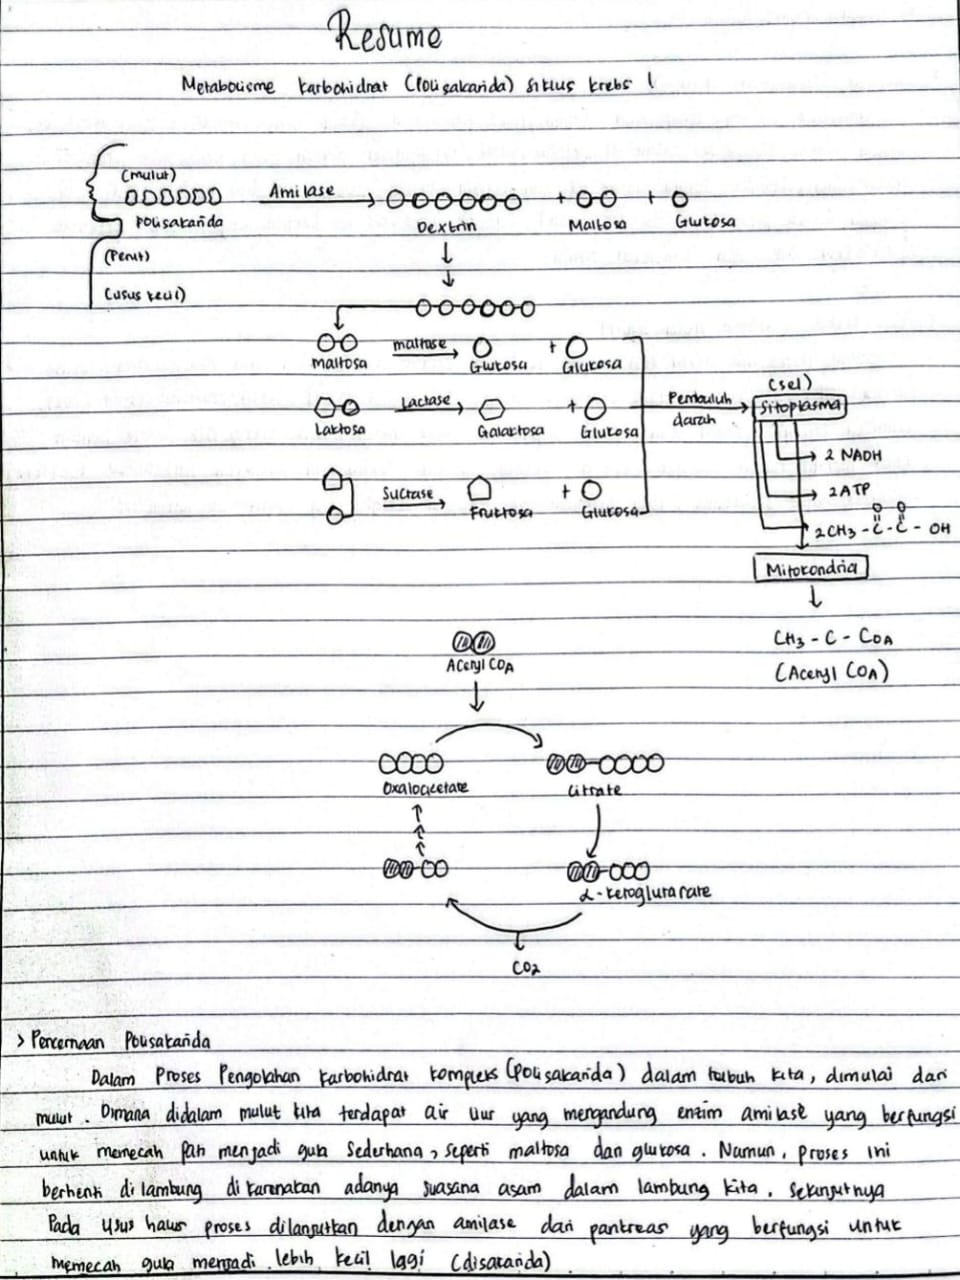 Resume
Metabolisme karbohidrat (Polisakarida) siklus krebs !
(mulut)
Polisakarida
Amilase
Dextrin
+
Maltosa
+
Glukosa
(Perut)
(usus kecil)
maltosa
maltase
Glukosa
+
Glukosa
Laktosa
Lactase
Galaktosa
+
Glukosa
Sucrase
Fruktosa
+
Glukosa
Pembuluh
darah
(sel)
Sitoplasma
2 NADH
2 ATP
O O
2CH3 - C - C - OH
Mitokondria
CH3 - C - CoA
(Acetyl CoA)
Acetyl CoA
Oxaloacetate
Citrate
α-ketoglutarate
CO2
> Pencernaan Polisakarida
Dalam Proses Pengolahan karbohidrat kompleks (polisakarida) dalam tubuh kita, dimulai dari
mulut. Dimana didalam mulut kita terdapat air liur yang mengandung enzim amilase yang berfungsi
untuk memecah pati menjadi gula sederhana, seperti maltosa dan glukosa. Namun, proses ini
berhenti di lambung di karenakan adanya suasana asam dalam lambung kita. Selanjutnya
Pada Usus halus proses dilanjutkan dengan amilase dari pankreas yang berfungsi untuk
memecah gula menjadi lebih kecil lagi (disakarida)